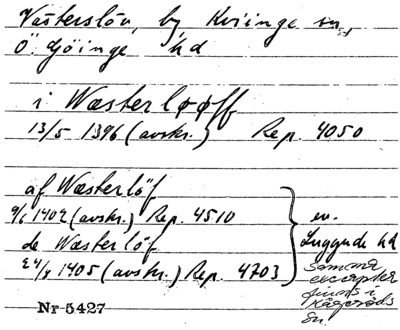 Västerslöv, by Kviinge sn,
Ö. Göinge hd
i Wæsterløøff
13/5 1396 (avskr.) Rep. 4050
af Wæsterlöf
9/6 1402 (avskr.) Rep. 4510
de Wæsterlöf
24/7 1405 (avskr.) Rep. 4703
ev.
Luggude hd
samma
excerpter
finns i
Kågeröds
sn.
Nr 5427